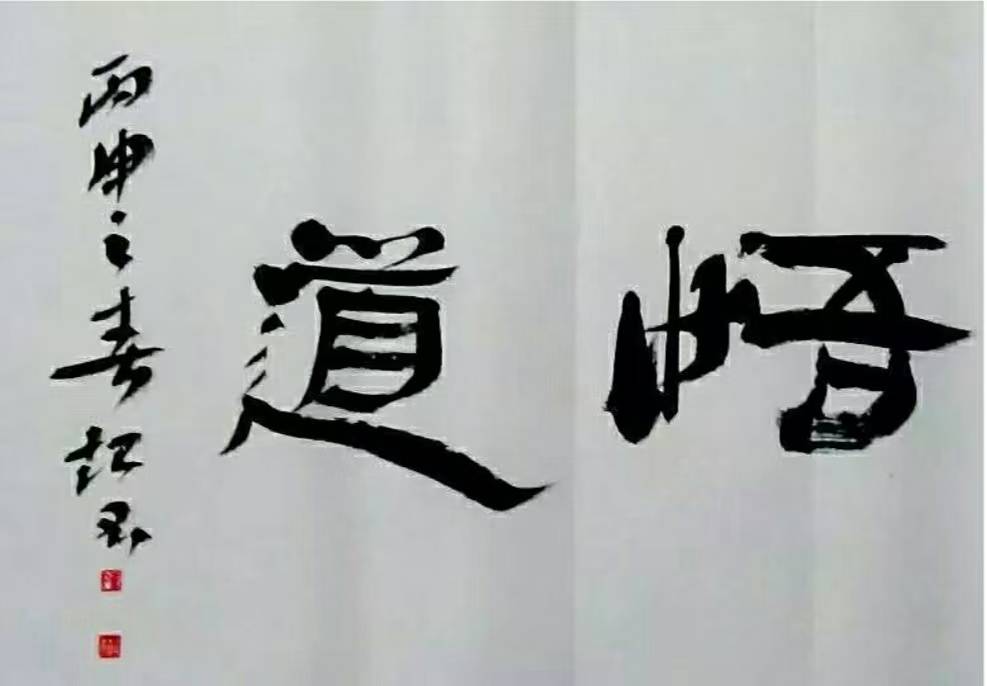 悟道
丙申之春